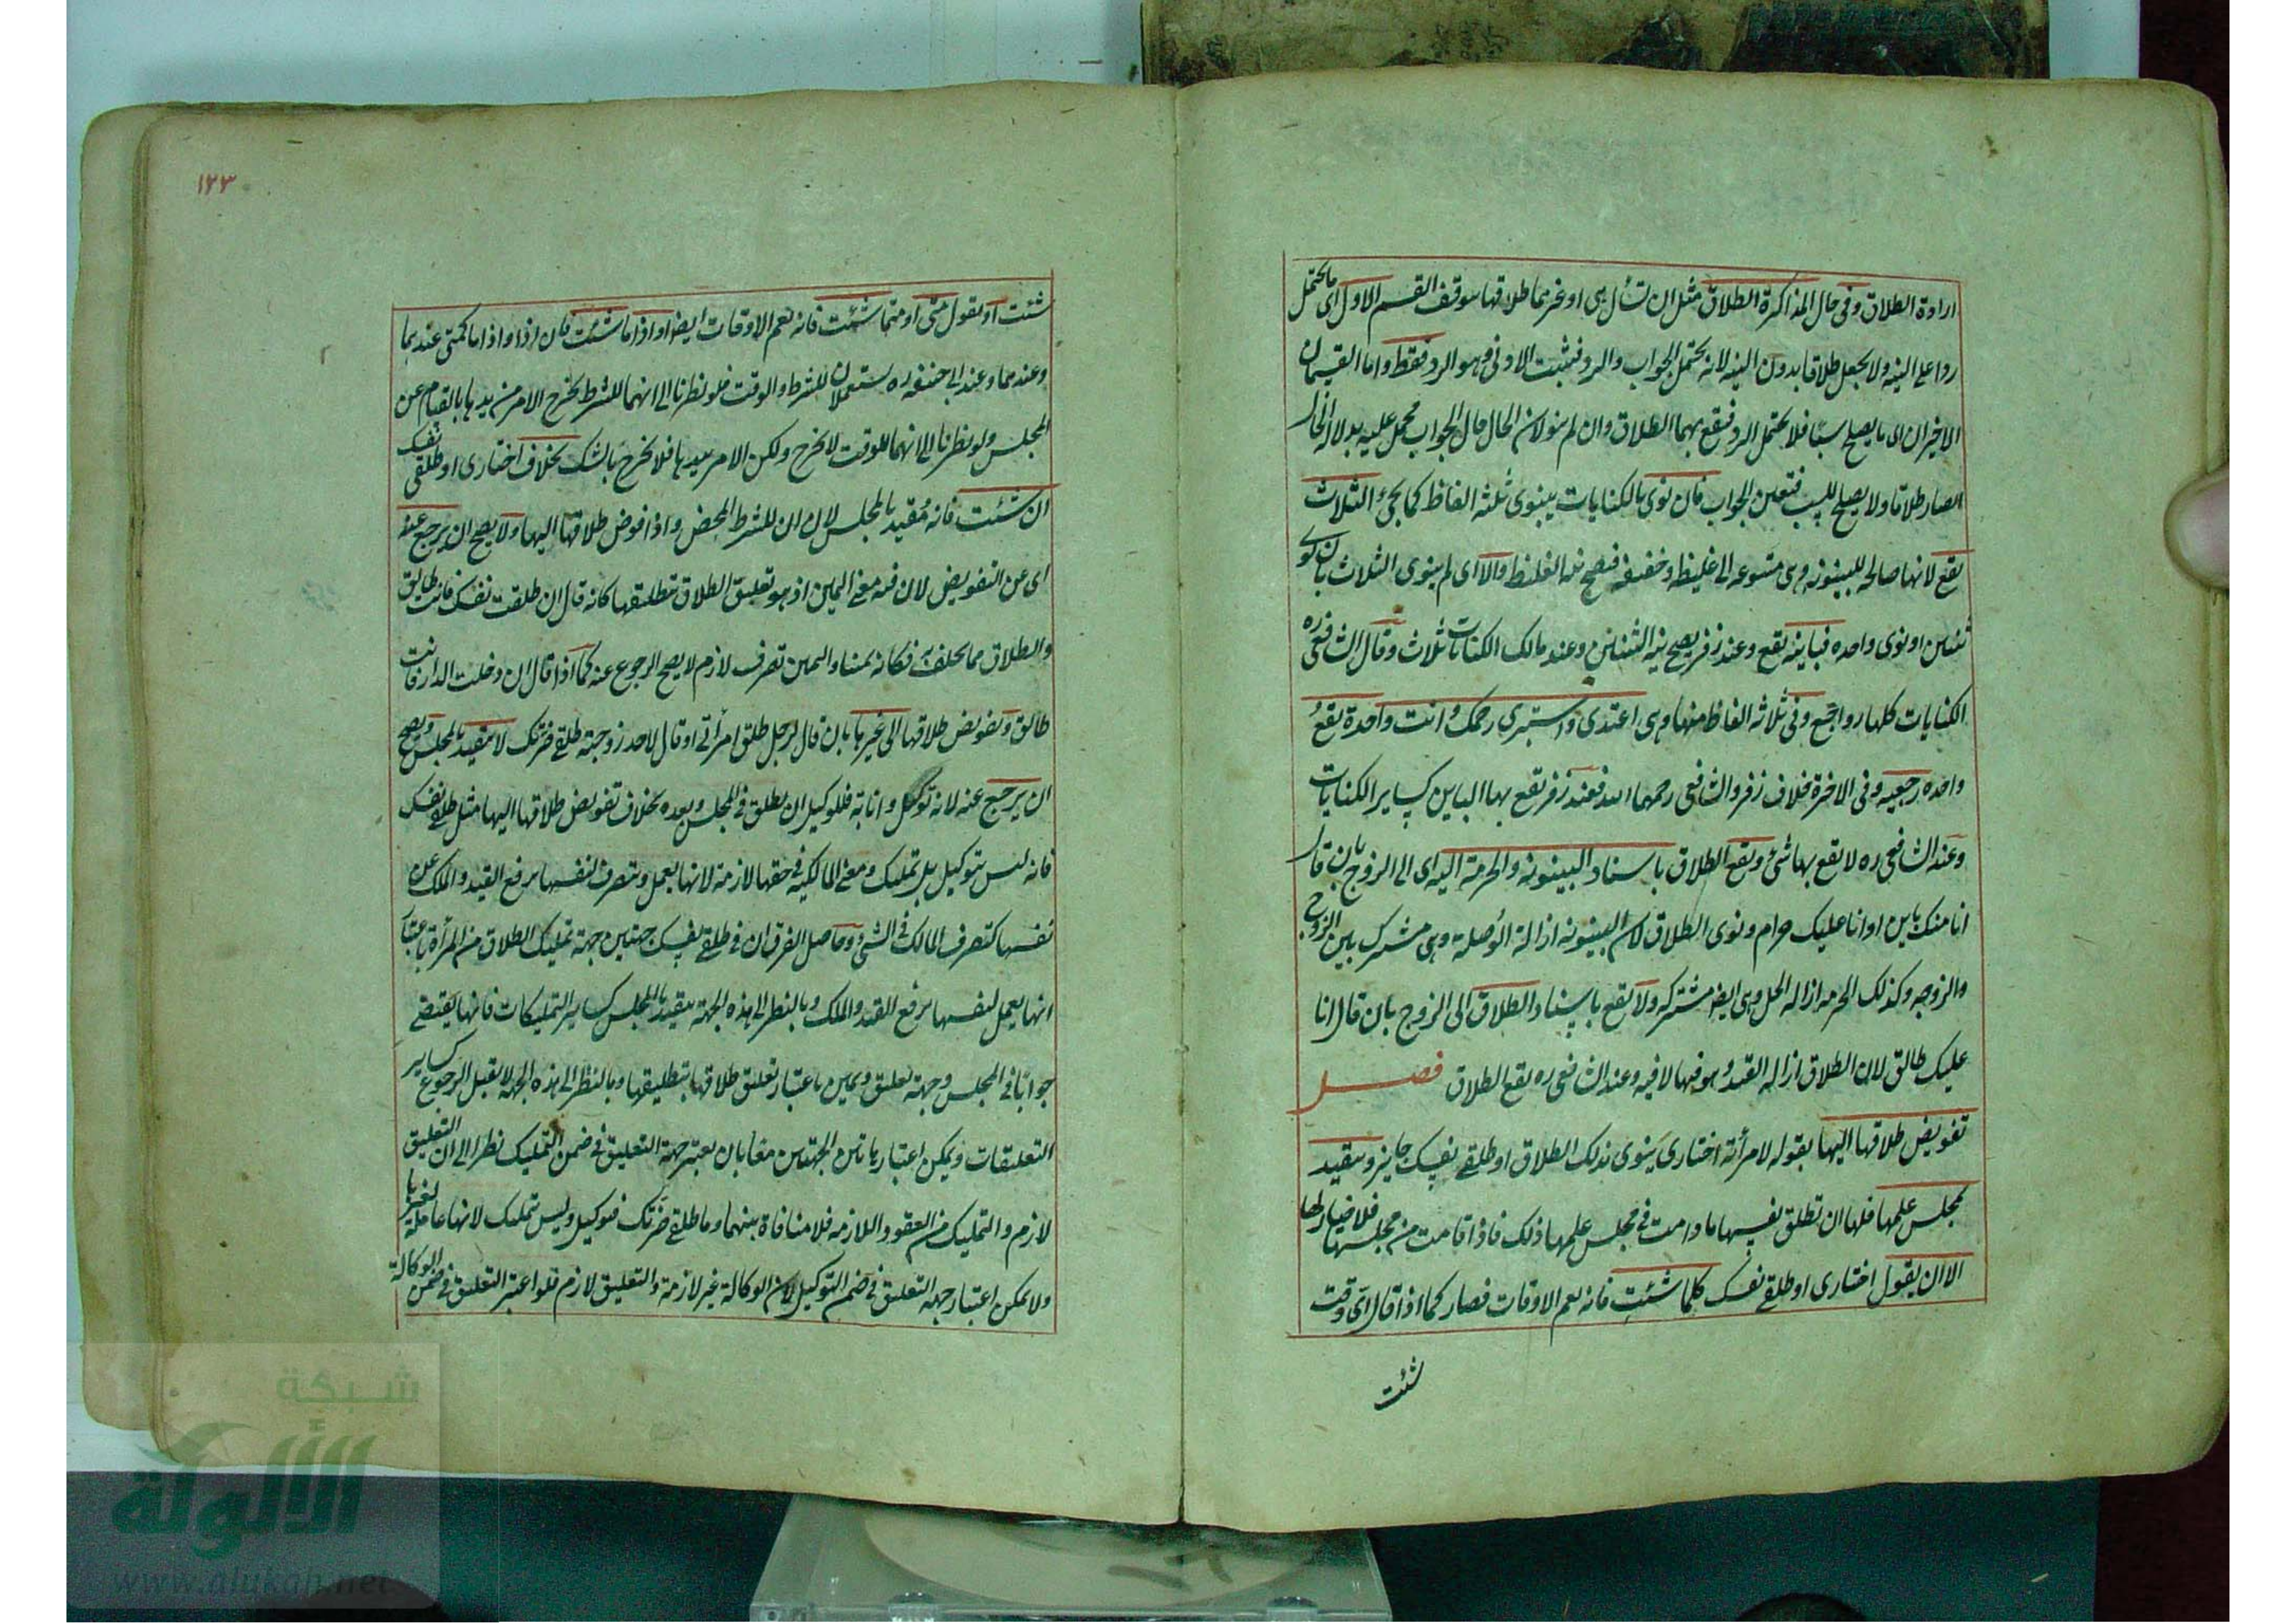 ارادة الطلاق وفى حال المذاكرة الطلاق مثل ان تسأل هى او غيرهما طلاقها يتوقف القسم الاول اى ما يحتمل
ردا على النية ولا يجعل طلاقا بدون النية لانه يحتمل الجواب والرد فيثبت الادنى وهو الرد فقط واما القسمان
الاخيران اى ما يصلح سبّا فلا يحتمل الرد فيقع بهما الطلاق وان لم ينو لان الحال حال الجواب فيحمل عليه بدلالة الحال
الصار طلاقا ولا يصلح للسب فتعين الجواب فان نوى بالكنايات ينوى ثلثة الفاظ كما يجئ الثلاث
يقع لانها صالحه للبينونه وهى متنوعه الى غليظه وخفيفه فيصح نية الغليظه والا اى لم ينوى الثلاث بان نوى
ثنتين او نوى واحده فباينه يقع وعند زفر يصح نية الثنتين وعند مالك الكنايات ثلاث وقال الشافعى ره
الكنايات كلها رواجع وفى ثلاثة الفاظ منها وهى اعتدى واستبرى رحمك وانت واحدة يقع
واحده رجعيه وفى الاخرة خلاف زفر والشافعى رحمهما الله فعند زفر يقع بها الباين كساير الكنايات
وعند الشافعى ره لا يقع بها شئ ويقع الطلاق باسناد البينونه والحرمة اليه اى الى الزوج بان قال
انا منك باين او انا عليك حرام ونوى الطلاق لان البينونه ازالة الوصلة وهى مشترك بين الزوج
والزوجه وكذلك الحرمه ازاله الحل وهى ايضا مشتركه ولا يقع باسناد الطلاق الى الزوج بان قال انا
عليك طالق لان الطلاق ازاله القيد وهو فيها لا فيه وعند الشافعى ره يقع الطلاق فصل
تفويض طلاقها اليها بقوله لامرأته اختارى ينوى بذلك الطلاق او طلقى نفسك جايز ويتقيد
بمجلس علمها فلها ان تطلق نفسها ما دامت فى مجلس علمها ذلك فاذا قامت من مجلسها فلا خيار لها
الا ان يقول اختارى او طلقى نفسك كلما شئت فانه يعم الاوقات فصار كما اذا قال اى وقت
شئت
١٢٣
شئت او يقول متى او متما شئت فانه يعم الاوقات ايضا او اذا ما شئت فان اذا واذا ما كمتى عندهما
وعندهما وعند ابى حنيفه ره يستعملان للشرط والوقت فلو نظرنا الى انهما للشرط يخرج الامر من يدها بالقيام عن
المجلس ولو نظرنا الى انهما للوقت لا يخرج ولكن الامر بيدها فلا يخرج بالشك بخلاف اختارى او طلقى نفسك
ان شئت فانه مُقيد بالمجلس لان ان للشرط المحض واذا فوض طلاقها اليها ولا يصح ان يرجع عنه
اى عن التفويض لان فيه معنى اليمين اذ هو تعليق الطلاق بتطليقها كانه قال ان طلقت نفسك فانت طالق
والطلاق مما يحلف به فكانه يمينا واليمين تصرف لازم لا يصح الرجوع عنه كما اذا قال ان دخلت الدار فانت
طالق وتفويض طلاقها الى غيرها بان قال لرجل طلق امرأتى او قال لاحد زوجته طلقى ضرتك لا يتقيد بالمجلس ويصح
ان يرجع عنه لانه توكيل وانابة فللوكيل ان يطلق فى المجلس وبعده بخلاف تفويض طلاقها اليها مثل طلقى نفسك
فانه ليس بتوكيل بل تمليك ومعنى المالكيه فى حقها لازمة لانها يعمل وتتصرف لنفسها برفع القيد والملك عن
نفسها كتصرف المالك فى الشئ وحاصل الفرق ان فى طلقى نفسك جهتين جهة تمليك الطلاق من المرأة باعتبار
انها يعمل لنفسها برفع القيد والملك وبالنظر الى هذه الجهة يتقيد بالمجلس كساير التمليكات فانها يقتضى
جوابًا فى المجلس وجهة تعليق ويمين باعتبار تعليق طلاقها بتطليقها وبالنظر الى هذه الجهة لا يقبل الرجوع كساير
التعليقات ويمكن اعتبار هاتين الجهتين معًا بان يعتبر جهة التعليق فى ضمن التمليك نظرا الى ان التعليق
لازم والتمليك من العقود اللازمه فلا منافاة بينهما وما طلقى ضرتك فتوكيل وليس تمليك لانها عاملة لغيرها
ولا يمكن اعتبار جهة التعليق فى ضمن التوكيل لان الوكالة غير لازمة والتعليق لازم فلو اعتبر التعليق فى ضمن الوكالة
شبكة
الألوكة
www.alukah.net